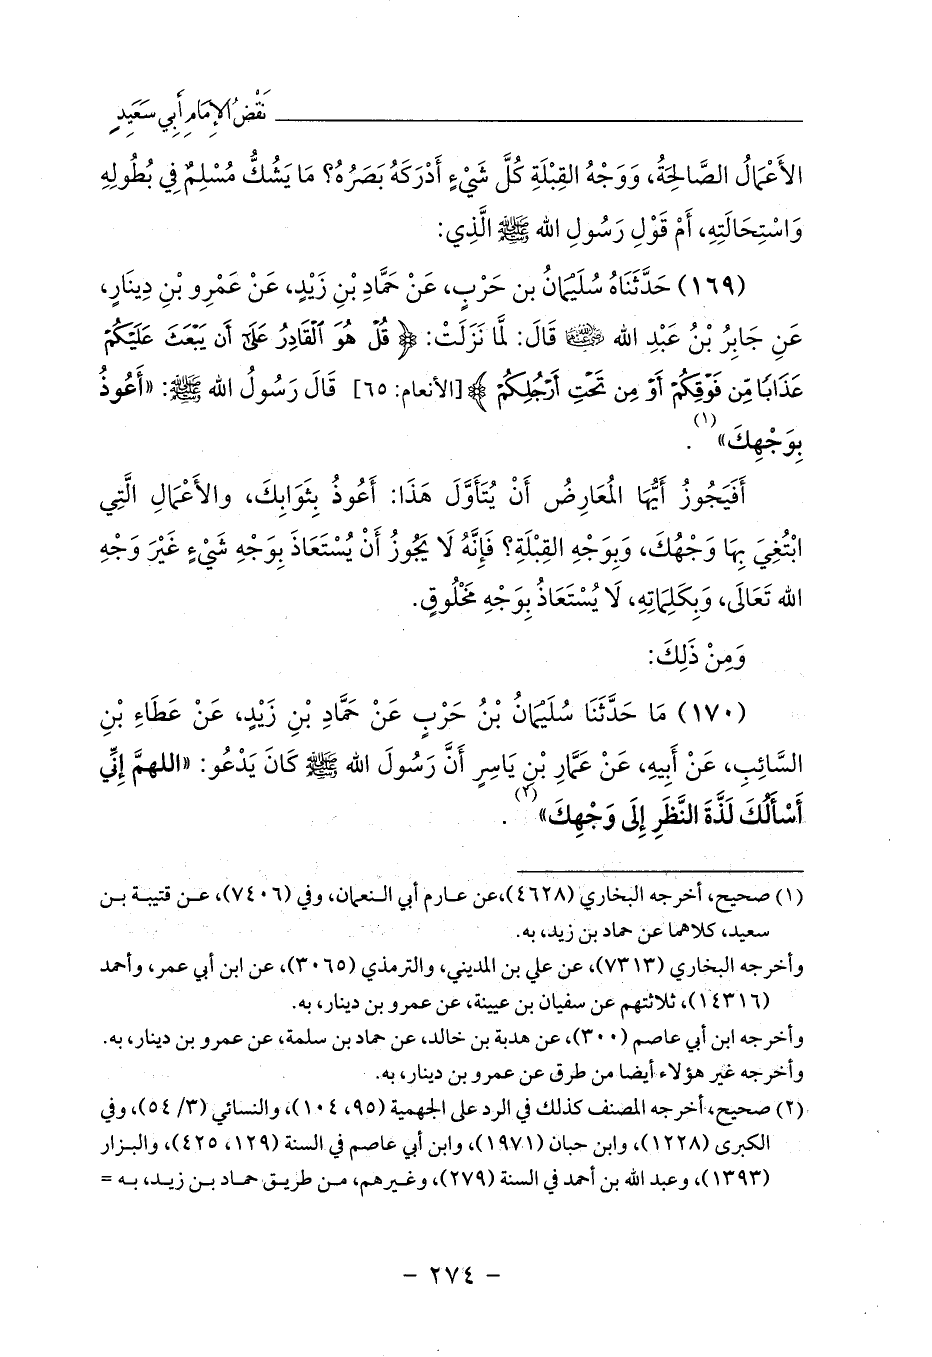 نَقْضُ الإِمَامِ أَبِي سَعَيدٍ
الأَعْمَالُ الصَّالِحَةُ، وَوَجْهُ القِبْلَةِ كُلَّ شَيْءٍ أَدْرَكَهُ بَصَرُهُ؟ مَا يَشُكُّ مُسْلِمٌ فِي بُطُولِهِ
وَاسْتِحَالَتِهِ، أَمْ قَوْلِ رَسُولِ الله ﷺ الَّذِي:
(١٦٩) حَدَّثَنَاهُ سُلَيْمَانُ بن حَرْبٍ، عَنْ حَمَّادِ بْنِ زَيْدٍ، عَنْ عَمْرِو بْنِ دِينَارٍ،
عَنِ جَابِرُ بْنُ عَبْدِ الله ﵁ قَالَ: لَمَّا نَزَلَتْ: ﴿ قُلْ هُوَ ٱلْقَادِرُ عَلَىٰٓ أَن يَبْعَثَ عَلَيْكُمْ
عَذَابًا مِّن فَوْقِكُمْ أَوْ مِن تَحْتِ أَرْجُلِكُمْ ﴾ [الأنعام: ٦٥] قَالَ رَسُولُ الله ﷺ: «أَعُوذُ
بِوَجْهِكَ»(١).
أَفَيَجُوزُ أَيُّهَا المُعَارِضُ أَنْ يُتَأَوَّلَ هَذَا: أَعُوذُ بِثَوَابِكَ، والأَعْمَالِ الَّتِي
ابْتُغِيَ بِهَا وَجْهُكَ، وَبِوَجْهِ القِبْلَةِ؟ فَإِنَّهُ لَا يَجُوزُ أَنْ يُسْتَعَاذَ بِوَجْهِ شَيْءٍ غَيْرَ وَجْهِ
الله تَعَالَى، وَبِكَلِمَاتِهِ، لَا يُسْتَعَاذُ بِوَجْهِ مَخْلُوقٍ.
وَمِنْ ذَلِكَ:
(١٧٠) مَا حَدَّثَنَا سُلَيْمَانُ بْنُ حَرْبٍ عَنْ حَمَّادِ بْنِ زَيْدٍ، عَنْ عَطَاءِ بْنِ
السَّائِبِ، عَنْ أَبِيهِ، عَنْ عَمَّارِ بْنِ يَاسِرٍ أَنَّ رَسُولَ الله ﷺ كَانَ يَدْعُو: «اللهمَّ إِنِّي
أَسْأَلُكَ لَذَّةَ النَّظَرِ إِلَى وَجْهِكَ»(٢).
(١) صحيح، أخرجه البخاري (٤٦٢٨)،عن عارم أبي النعمان، وفي (٧٤٠٦)، عن قتيبة بن
سعيد، كلاهما عن حماد بن زيد، به.
وأخرجه البخاري (٧٣١٣)، عن علي بن المديني، والترمذي (٣٠٦٥)، عن ابن أبي عمر، وأحمد
(١٤٣١٦)، ثلاثتهم عن سفيان بن عيينة، عن عمرو بن دينار، به.
وأخرجه ابن أبي عاصم (٣٠٠)، عن هدبة بن خالد، عن حماد بن سلمة، عن عمرو بن دينار، به.
وأخرجه غير هؤلاء أيضا من طرق عن عمرو بن دينار، به.
(٢) صحيح، أخرجه المصنف كذلك في الرد على الجهمية (٩٥، ١٠٤)، والنسائي (٣/ ٥٤)، وفي
الكبرى (١٢٢٨)، وابن حبان (١٩٧١)، وابن أبي عاصم في السنة (١٢٩، ٤٢٥)، والبزار
(١٣٩٣)، وعبد الله بن أحمد في السنة (٢٧٩)، وغيرهم، من طريق حماد بن زيد، به =
- ٢٧٤ -